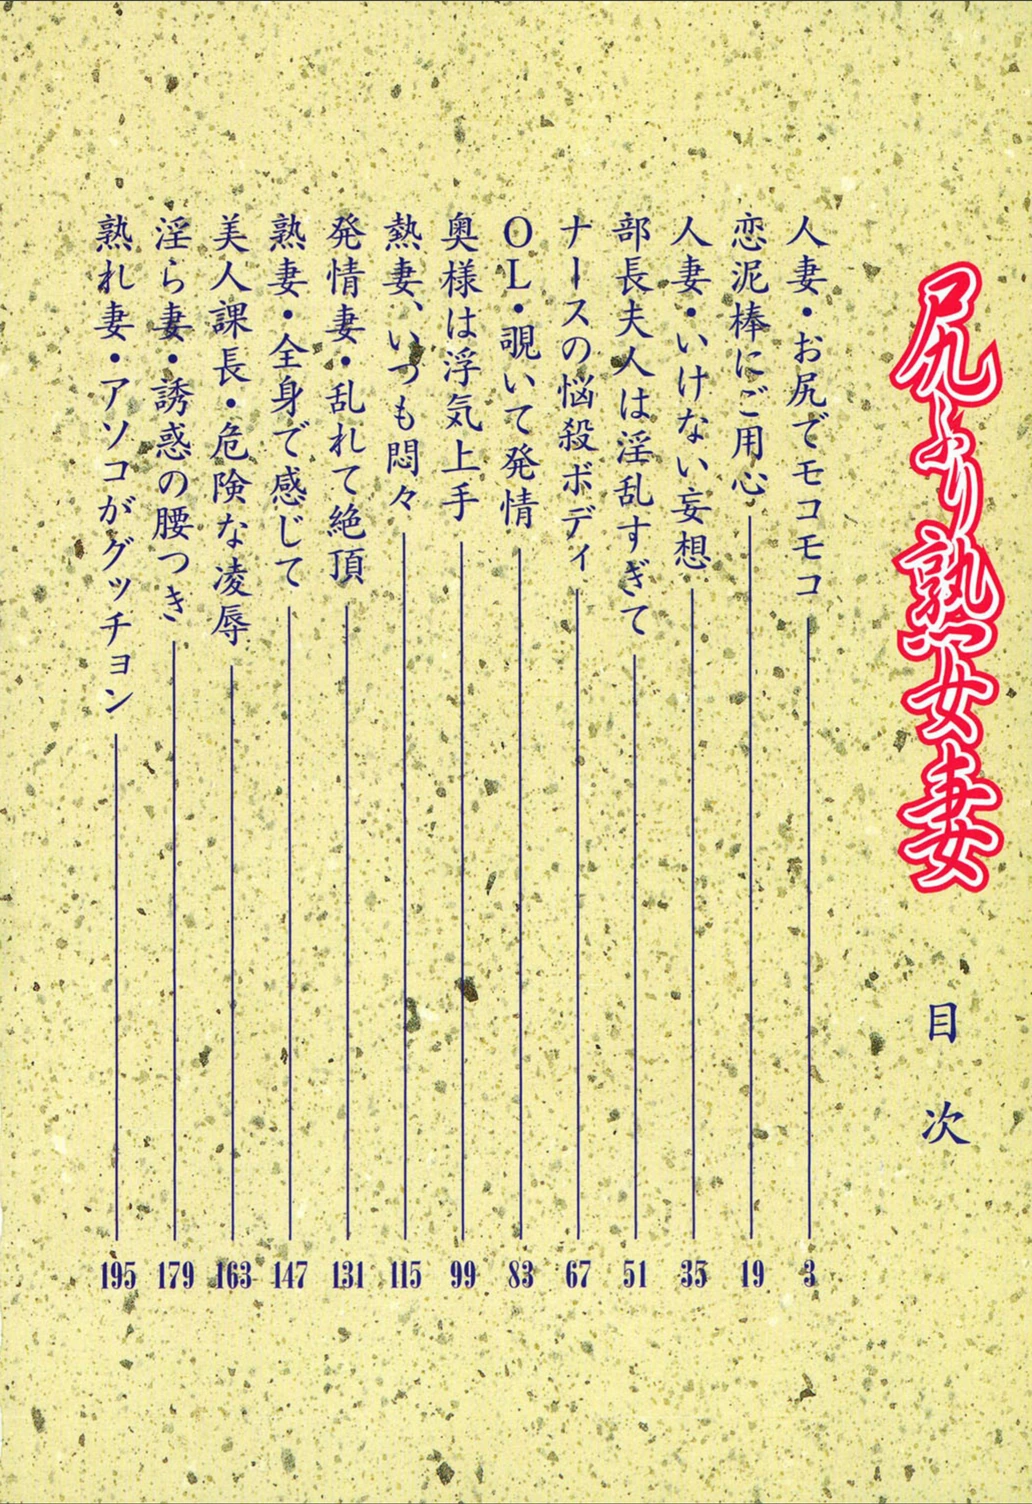 尻ふり熟女妻
目次
人妻・お尻でモコモコ 3
恋泥棒にご用心 19
人妻・いけない妄想 35
部長夫人は淫乱すぎて 51
ナースの悩殺ボディ 67
OL・覗いて発情 83
奥様は浮気上手 99
熱妻、いつも悶々 115
発情妻・乱れて絶頂 131
熟妻・全身で感じて 147
美人課長・危険な凌辱 163
淫ら妻・誘惑の腰つき 179
熟れ妻・アソコがグッチョン 195